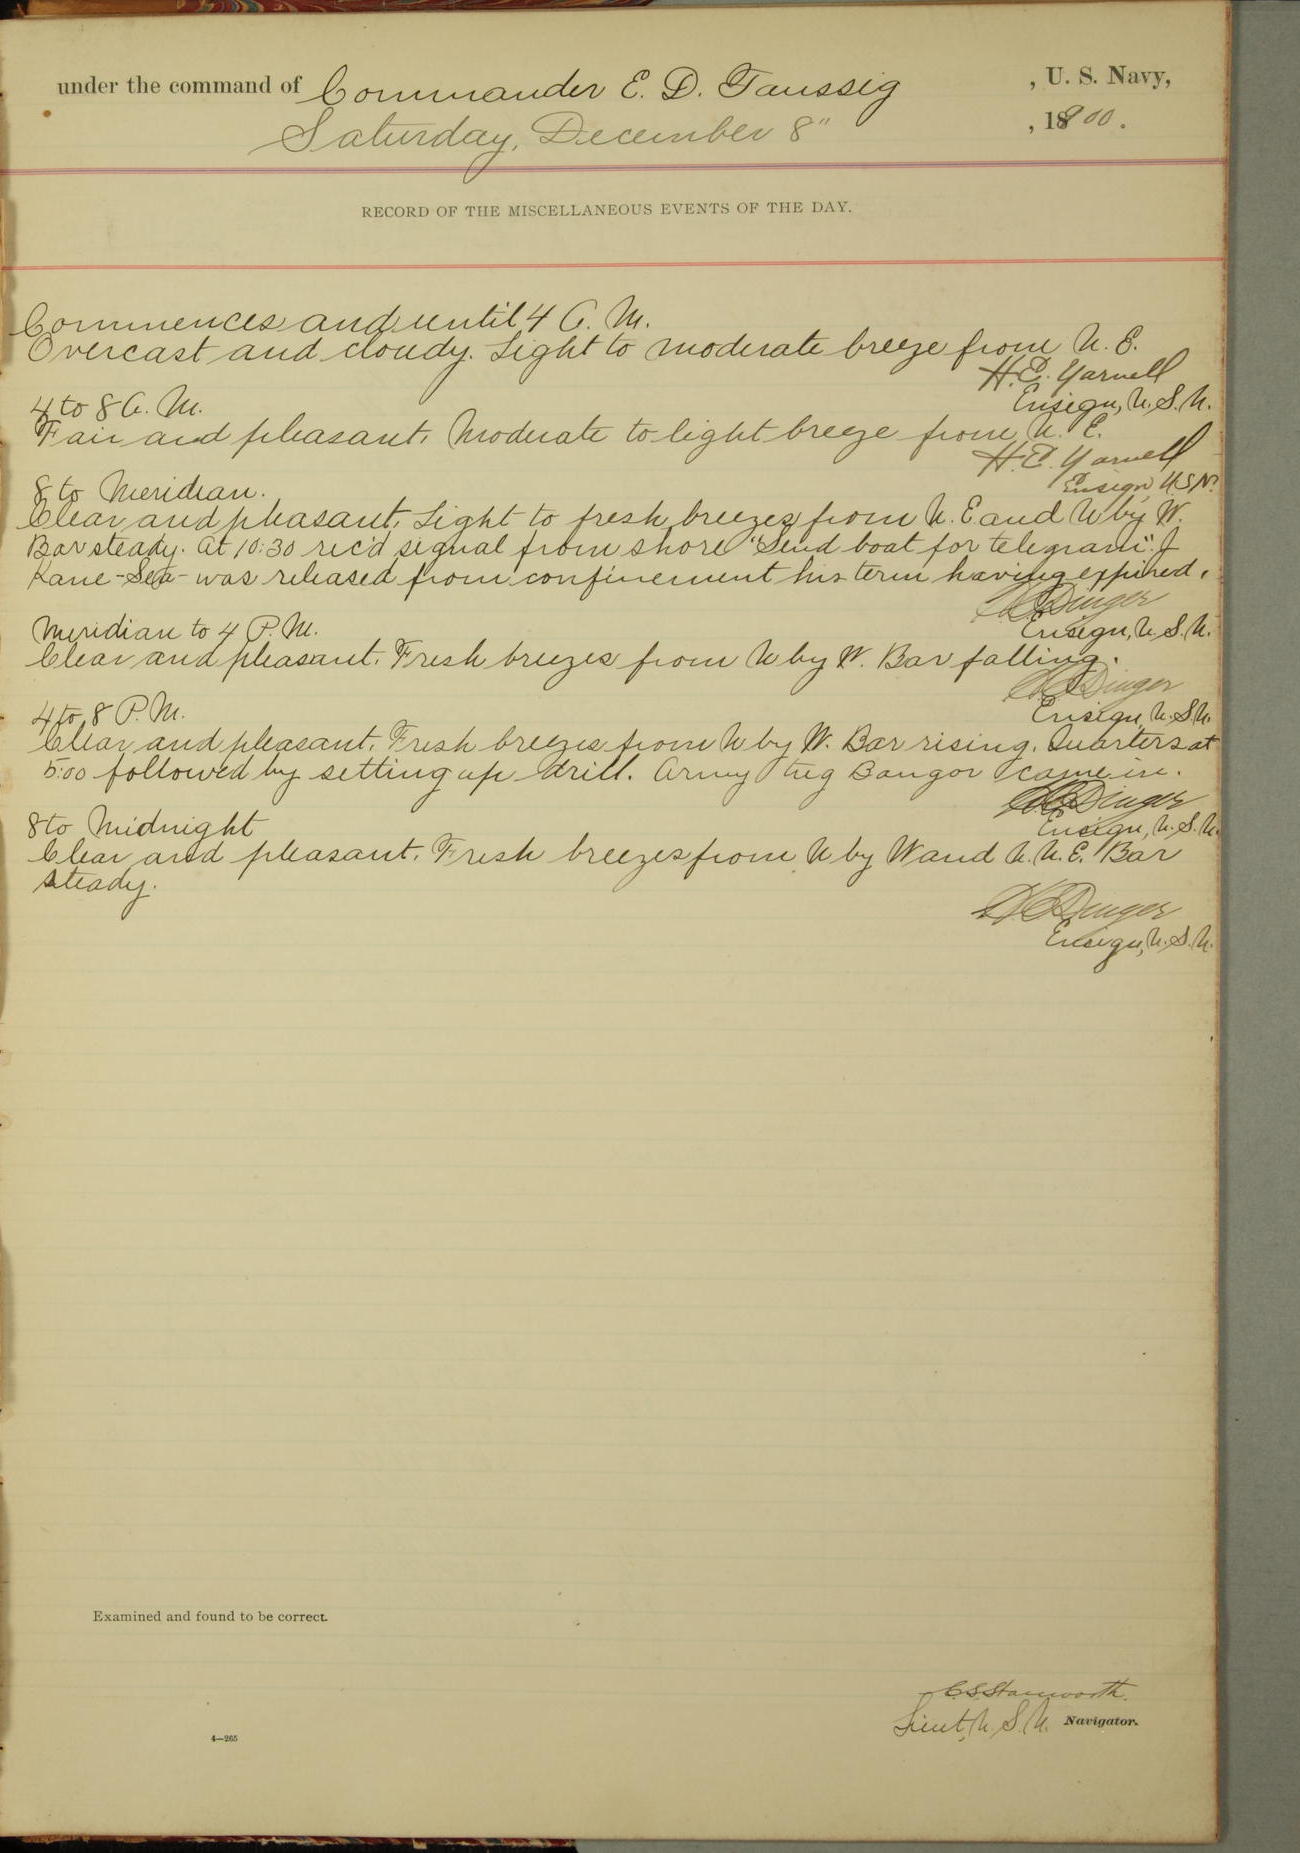 under the command of Commander E. D. Taussig , U. S. Navy,
Saturday, December 8" , 1900.
RECORD OF THE MISCELLANEOUS EVENTS OF THE DAY.
Commences and until 4 A. M.
Overcast and cloudy. Light to moderate breeze from N. E.
H. E. Yarnell
Ensign, U. S. N.
4 to 8 A. M.
Fair and pleasant. Moderate to light breeze from N. E.
H. E. Yarnell
Ensign U.S.N.
8 to Meridian.
Clear and pleasant. Light to fresh breezes from N. E and N by W.
Bar steady. At 10:30 rec'd signal from shore "Send boat for telegram". J
Kane -Sea- was released from confinement his term having expired.
H C Dinger
Ensign, U. S. N.
Meridian to 4 P. M.
Clear and pleasant. Fresh breezes from N by W. Bar falling.
H C Dinger
Ensign, U. S. N.
4 to 8 P. M.
Clear and pleasant. Fresh breezes from N by W. Bar rising. Quarters at
5:00 followed by setting up drill. Army tug Bangor came in.
H C Dinger
Ensign, U. S. N.
8 to Midnight
Clear and pleasant. Fresh breezes from N by W and N. N. E. Bar
steady.
H C Dinger
Ensign, U. S. N.
Examined and found to be correct.
C S Stanworth.
Lieut, U. S. N. Navigator.
4—265